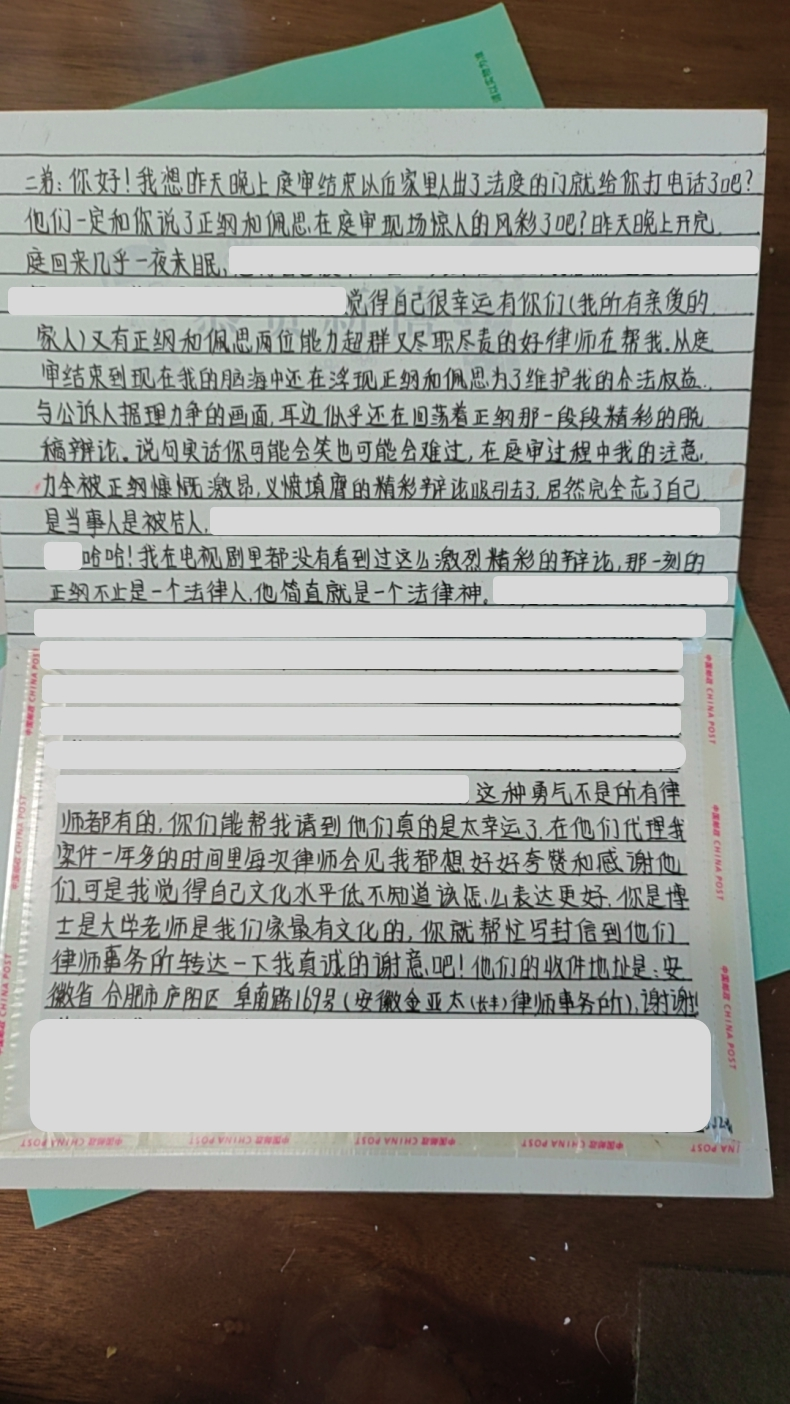 二弟：你好！我想昨天晚上庭审结束以后家里人出了法庭的门就给你打电话了吧？
他们一定和你说了正纲和佩思在庭审现场惊人的风彩了吧？昨天晚上开完
庭回来几乎一夜未眠，
觉得自己很幸运有你们（我所有亲爱的
家人）又有正纲和佩思两位能力超群又尽职尽责的好律师在帮我。从庭
审结束到现在我的脑海中还在浮现正纲和佩思为了维护我的合法权益
与公诉人据理力争的画面，耳边似乎还在回荡着正纲那一段段精彩的脱
稿辩论。说句实话你可能会笑也可能会难过，在庭审过程中我的注意
力全被正纲慷慨激昂，义愤填膺的精彩辩论吸引去了，居然完全忘了自己
是当事人是被告人，
哈哈！我在电视剧里都没有看到过这么激烈精彩的辩论，那一刻的
正纲不止是一个法律人，他简直就是一个法律神。
这种勇气不是所有律
师都有的，你们能帮我请到他们真的是太幸运了，在他们代理我
案件一年多的时间里每次律师会见我都想好好夸赞和感谢他
们，可是我觉得自己文化水平低不知道该怎么表达更好，你是博
士是大学老师是我们家最有文化的，你就帮忙写封信到他们
律师事务所转达一下我真诚的谢意吧！他们的收件地址是：安
徽省合肥市庐阳区阜南路169号（安徽金亚太（长丰）律师事务所），谢谢！
中国邮政 CHINA POST
中国邮政 CHINA POST
中国邮政 CHINA POST
中国邮政 CHINA POST
中国邮政 CHINA POST
中国邮政 CHINA POST
中国邮政 CHINA POST
中国邮政 CHINA POST
中国邮政 CHINA POST
中国邮政 CHINA POST
INA POST